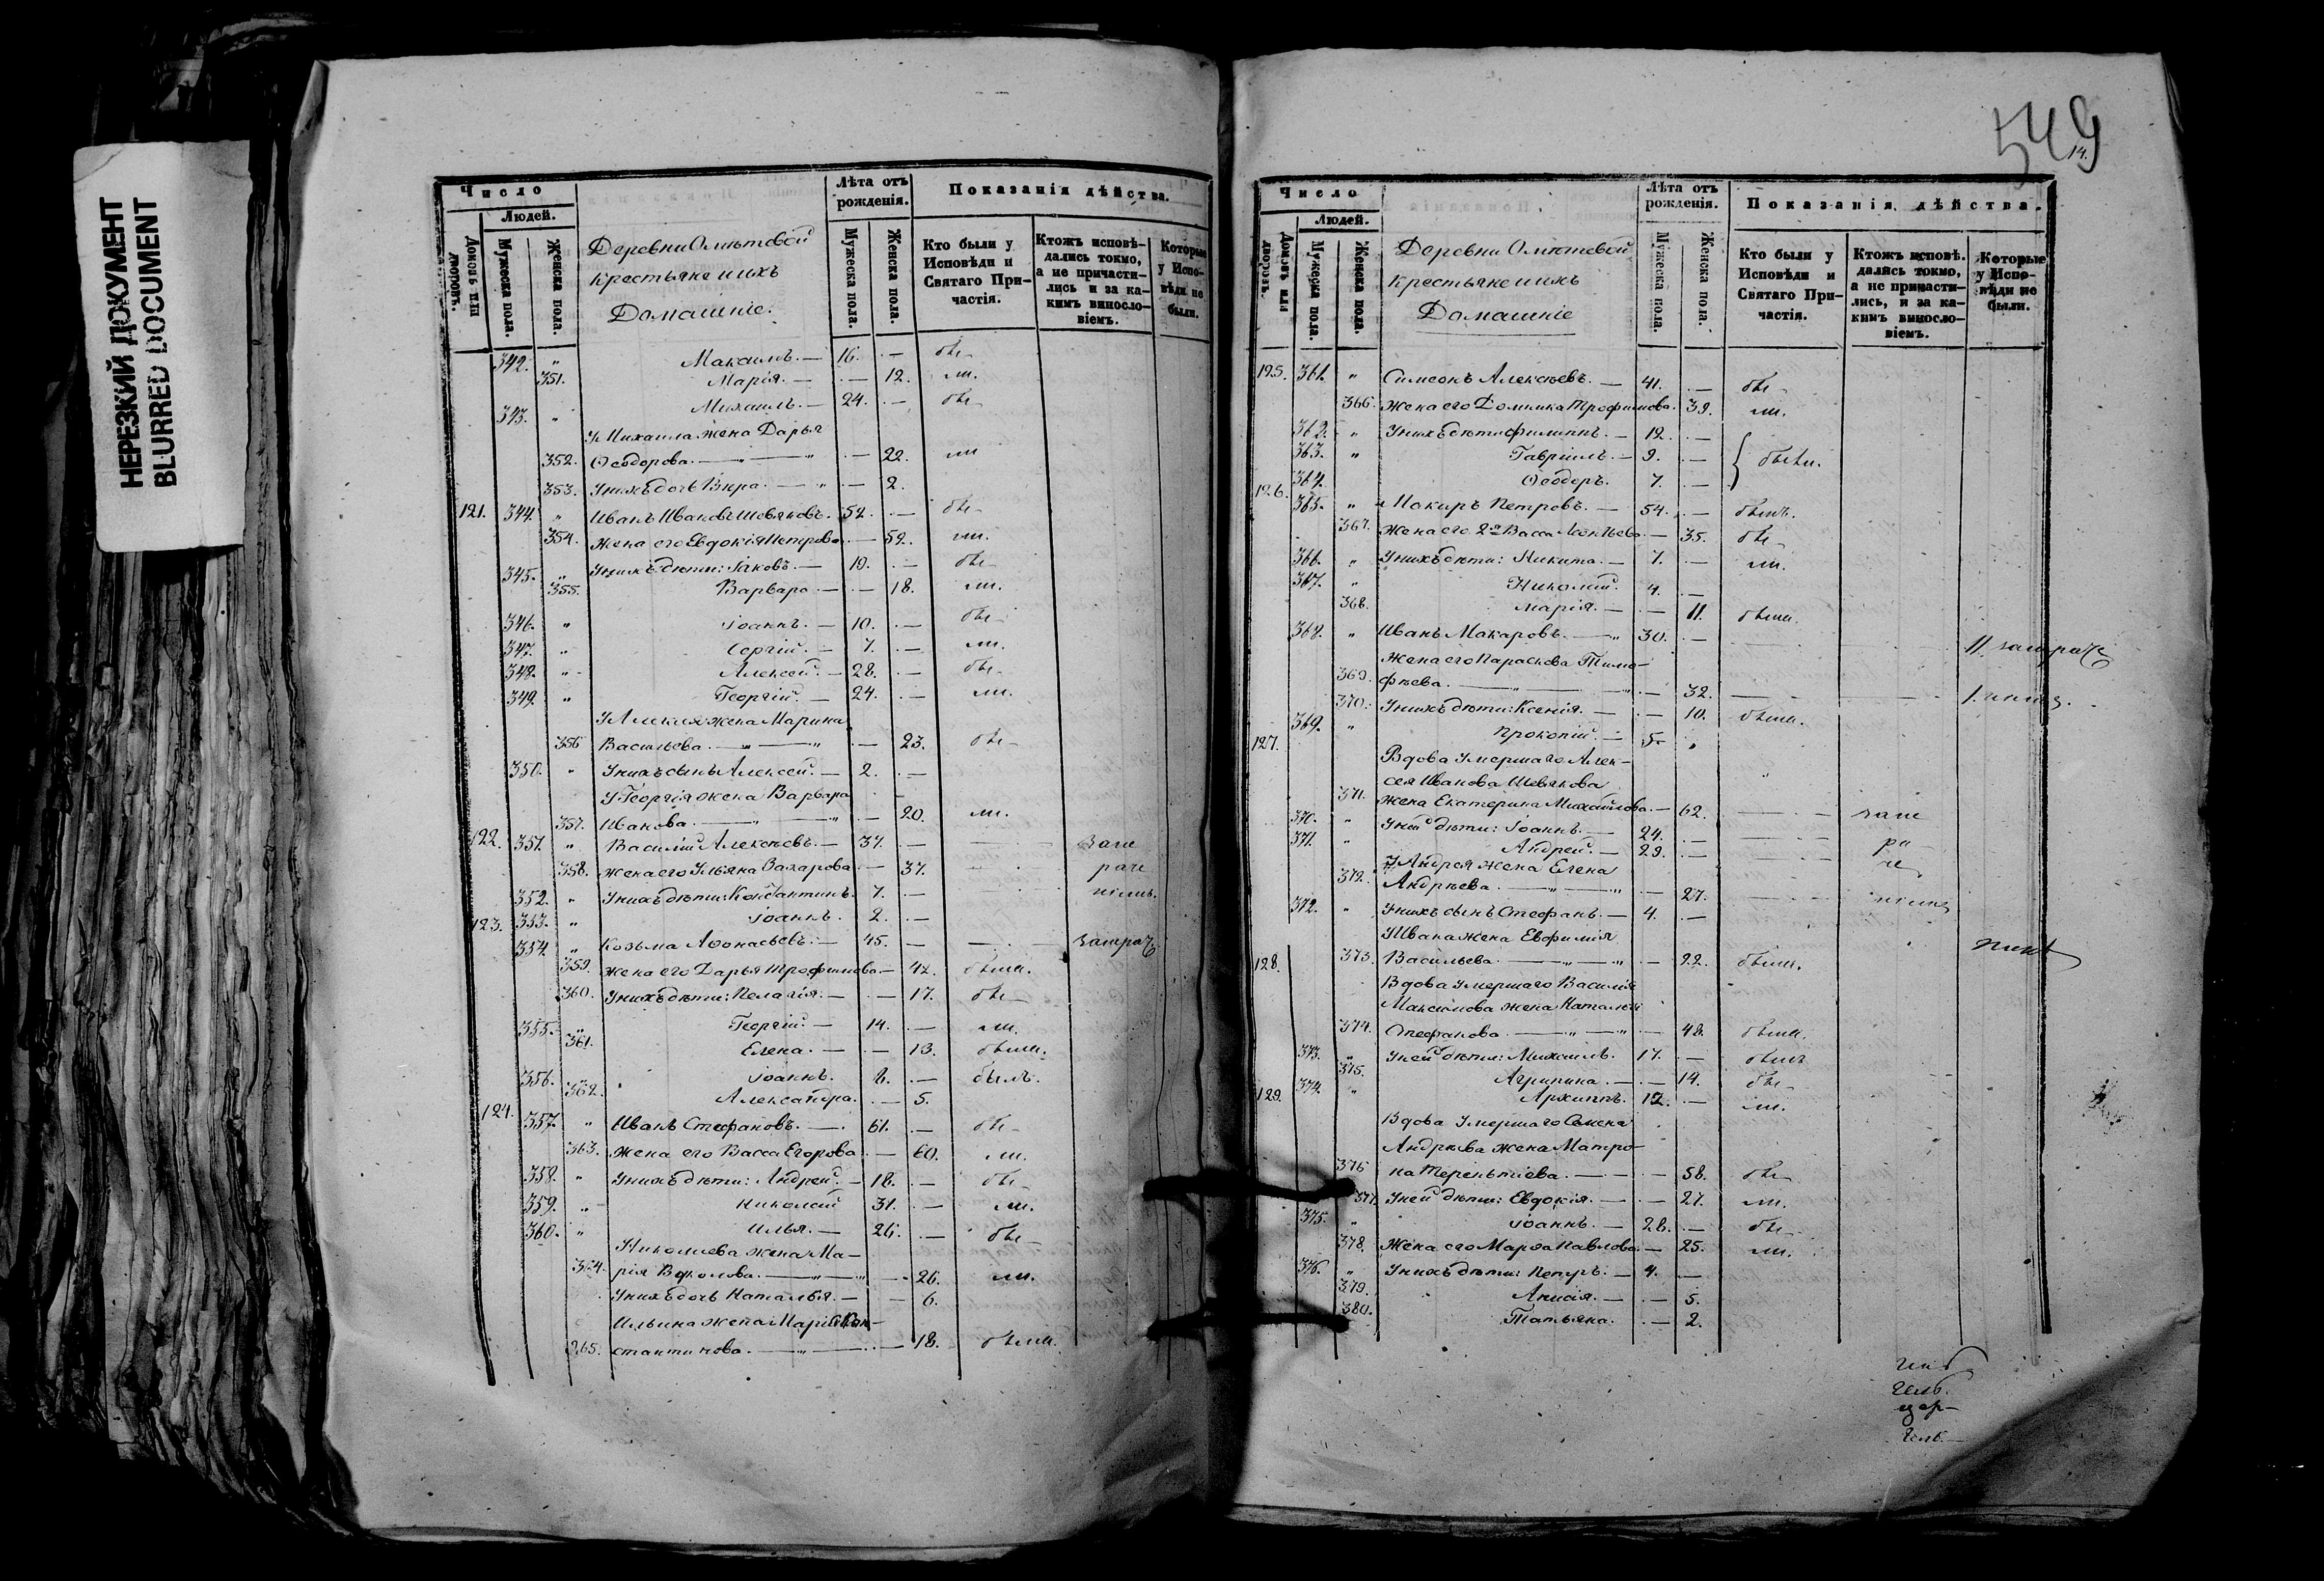 НЕРЕЗКИЙ ДОКУМЕНТ
BLURRED DOCUMENT
Число
Людей.
Домовъ или дворовъ.
Мужеска пола.
Женска пола.
Деревни Олютовой
крестьяне и ихъ
Домашніе.
Лѣта отъ рожденія.
Мужеска пола.
Женска пола.
Показанія дѣйства.
Кто были у Исповѣди и Святаго Причастія.
Ктожъ исповѣдались токмо, а не причастились и за какимъ винословіемъ.
Которые у Исповѣди не были.
342. " Максимъ. — 16. — бы-
351. Марія. — — 12. ли.
343. " Михаилъ. — 24. — бы-
У Михаила жена Дарья
352. Ѳеодорова. — " — " — 22. ли
353. У нихъ дочь Вѣра. — " — 2.
121. 344. " Иванъ Ивановъ Шевяковъ. 52. — бы-
354. Жена его Евдокія Петрова. — 52. ли.
345. " У нихъ дѣти: Іаковъ. — 19. — бы-
355. Варвара. — — 18. ли.
346. " Іоаннъ. — 10. — бы-
347. " Сергій. — 7. — ли.
348. " Алексей. — 28. — бы-
349. " Георгій. — 24. — ли.
У Алексея жена Марина
356 Васильева. — " — " — 23. бы-
350. " У нихъ сынъ Алексей. — 2. —
У Георгія жена Варвара
357. Иванова. — " — " — 20. ли.
122. 351. " Василій Алексѣевъ. — 37. — — — за не
358. Жена его Ульяна Захарова. — 37. — раче
352. " У нихъ дѣти: Константинъ. 7. — — ніемъ.
353. " Іоаннъ. 2. —
123. 354. " Козьма Аѳонасьевъ. — 45. — — —
359. Жена его Дарья Трофимова. — 42. были.
360. У нихъ дѣти: Пелагія. — — 17. бы-
355. " Георгій. — 14. — ли.
361. Елена. — — 13. были.
356. " Іоаннъ. 8. — былъ.
362. Александра. — 5.
124. 357. " Иванъ Стефановъ. — 61. — бы-
363. Жена его Васса Егорова. — 60. ли.
358. " У нихъ дѣти: Андрей. — 18. — бы-
359. " Николай 31. — ли.
360. " Илья. — 26. — бы-
Николаева жена Ма-
364. рія — " — " — 26. ли.
У нихъ дочь Наталья. — — 6.
Ильина жена Марія Кон-
365. стантинова. — " — — 18. были.
549
14.
Число
Людей.
Домовъ или дворовъ.
Мужеска пола.
Женска пола.
Деревни Олютовой
крестьяне и ихъ
Домашніе
Лѣта отъ рожденія.
Мужеска пола.
Женска пола.
Показанія дѣйства.
Кто были у Исповѣди и Святаго Причастія.
Ктожъ исповѣдались токмо, а не причастились, и за какимъ винословіемъ.
Которые у Исповѣди не были.
125. 361. " Симеонъ Алексѣевъ. — 41. — бы-
366. Жена его Домника Трофимова. 39. ли.
362. " У нихъ дѣти: Филиппъ. — 12. —
363. " Гавріилъ. — 9. — были.
364. Ѳеодоръ. 7. —
126. 365. " Макаръ Петровъ. — 54. — былъ.
367. Жена его 2я Васса Леонтьева — 35. бы-
366. " У нихъ дѣти: Никита. — 7. — ли.
367. " Николай. 4. —
368. Марія. — — 11. были.
368. " Иванъ Макаровъ. — " 30. — — —
Жена его Параскева Тимо-
369. фѣева. — " — " — 32. — —
370. У нихъ дѣти: Ксенія. — — 10. были.
369. " Прокопій. — 5. "
127. Вдова умершаго Алек-
сея Иванова Шевякова
371. жена Екатерина Михайлова. — 62. — — за не
370. " У ней дѣти: Іоаннъ. — 24. — — — ра-
371. " Андрей. — 29. — — — че
У Андрея жена Елена
372. Андрѣева. — " — " — 27. — — ніемъ
372. " У нихъ сынъ Стефанъ. — 4. —
У Ивана жена Евфимія
128. 373. Васильева. — " — " — 22. были.
Вдова умершаго Василія
Максимова жена Наталья
374. Стефанова. — " — " — 48. были.
373. " У ней дѣти: Михаилъ. 17. — былъ
375. Агрипина. — — 14. бы-
129. 374. " Архиппъ. 12. — ли.
Вдова умершаго Семена
Андрѣева жена Матро-
376 на Терентіева. — — — 58. бы-
377. У ней дѣти: Евдокія. — — 27. ли.
375. " Іоаннъ. — 28. — бы-
378. Жена его Марѳа Павлова. — 25. ли.
376. " У нихъ дѣти: Петръ. — 4. —
379. Анисія. — — 5.
380. Татьяна. — 2.